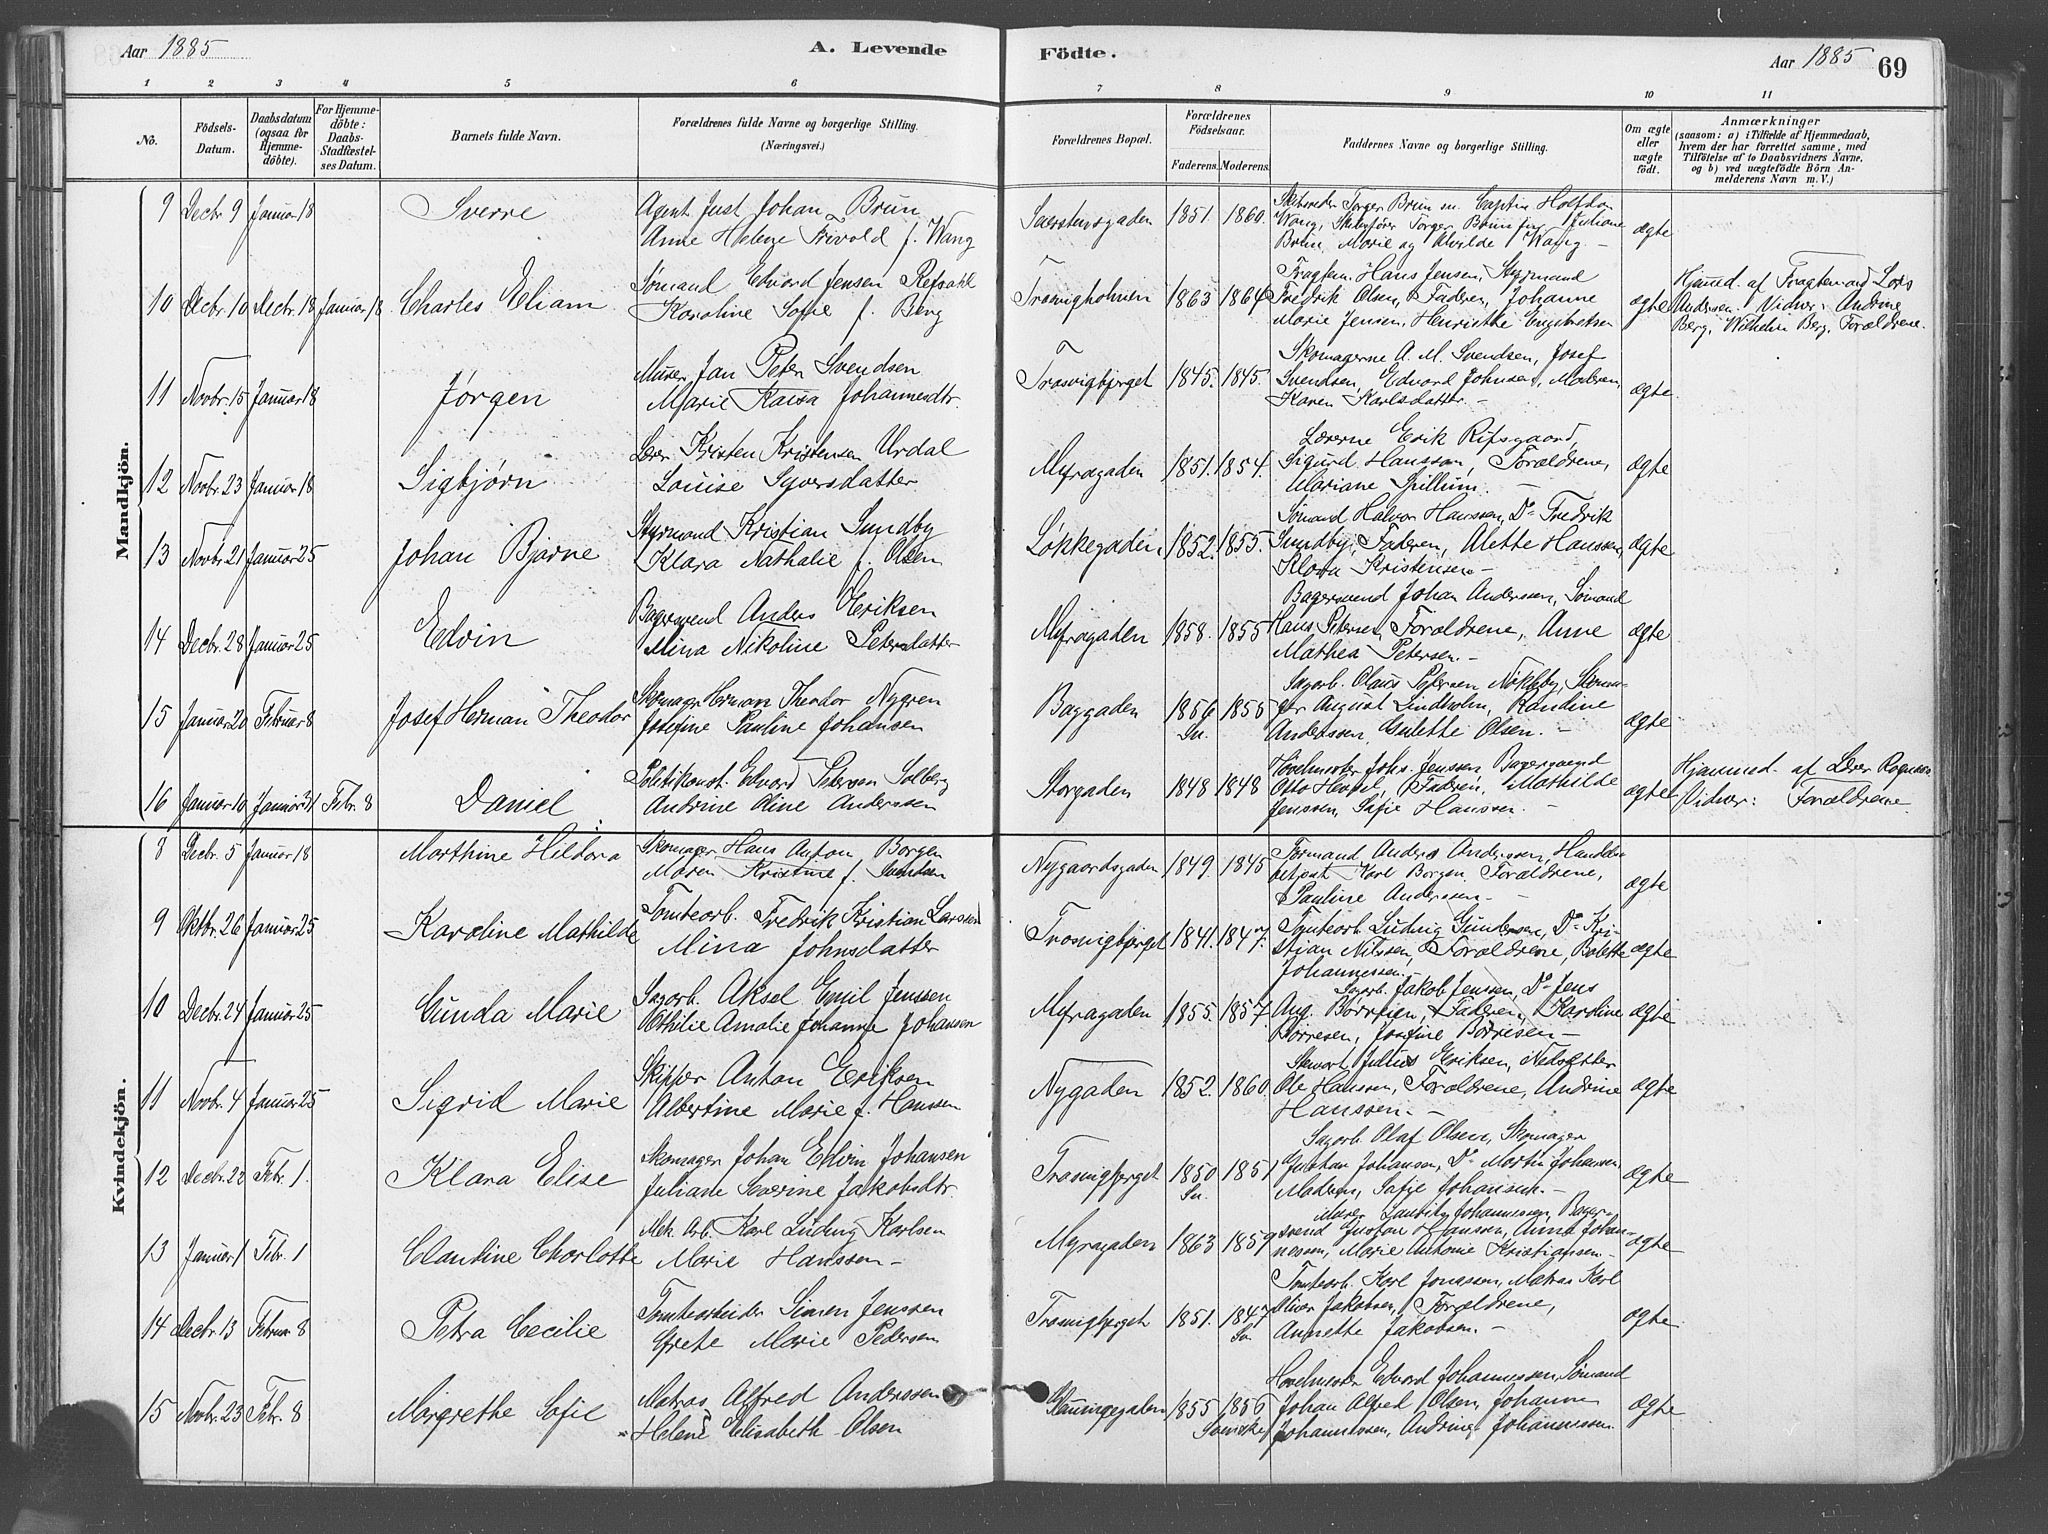 Aar 1885
A. Levende
Födte.
Aar 1885
69
1 2 3 4 5 6 7 8 9 10 11
No.
Födsels-Datum.
Daabsdatum (ogsaa for Hjemme-döbte).
For Hjemme-döbte: Daabs-Stadfæstel-ses Datum.
Barnets fulde Navn.
Forældrenes fulde Navne og borgerlige Stilling.
(Næringsvei.)
Forældrenes Bopæl.
Forældrenes Födselsaar.
Faderens. Moderens.
Faddernes Navne og borgerlige Stilling.
Om ægte eller uægte födt.
Anmærkninger
(saasom: a) i Tilfælde af Hjemmedaab, hvem der har forrettet samme, med Tilföielse af to Daabsvidners Navne, og b) ved uægtefödte Börn An-melderens Navn m. V.)
Mandkjön.
9 Decbr 9 Januar 18 Sverre
Agent Just Johan Brun
Anne Helene Trivold f. Wang
1851. 1860.
Brun, Marie og Wang. –
ægte
10 Decbr. 10 Decbr. 18 Januar 18 Charles Eliam
Sømand Edvard Jensen Refsahl
Karoline Sofie f. Berg
Trosvigholmen 1863 1864
Fragtem. Hans Jensen, Styrmand
Fredrik Olsen, Faderen, Johanne
Marie Jensen, Henriette Engebretsen
ægte
Hjmmed. af Fragtemand Lars
Andersen. Vidner: Andrine
Berg, Wilhelm Berg, Forældrene.
11 Novbr. 15 Januar 18 Jørgen
Murer Jan Peter Svendsen
Marie Kaisa Johannesdtr.
Trosvigbjerget 1845. 1845.
Skomagerne A. M. Svendsen, Josef
Svendsen, Edvard Johnsen, Moderen,
Karen Karlsdatter. –
ægte
12 Novbr. 23 Januar 18 Sigbjørn
Lærer Kristen Kristensen Urdal
Louise Syversdatter
Myragaden 1851. 1854.
Lærerne Erik Rifsgaard,
Sigurd Hansson, Forældrene,
Mariane Spillum. –
ægte
13 Novbr. 21 Januar 25 Johan Bjarne
Styrmand Kristian Sundby
Klara Nathalie f. Olsen
Løkkegaden 1852. 1855.
Sømand Halvor Hanssen, Do Fredrik
Sundby, Faderen, Alette Hanssen,
Klara Kristensen –
ægte
14 Decbr. 28 Januar 25 Edvin
Bagersvend Anders Eriksen
Mina Nikoline Petersdatter
Myragaden 1858. 1855
Bagersvend Johan Anderssen, Sømand
Hans Petersen, Forældrene, Anne
Mathea Petersen. –
ægte
15 Januar 20 Februar 8 Josef Herman Theodor
Skomager Herman Theodor Nygren
Josefine Pauline Johansen
Baggaden 1856 Sv. 1855
Sagarb. Olaus Petersen Nøkleby,
August Lindholm, Randine
Anderssen, Gulette Olsen. –
ægte
16 Januar 10 Januar 31 Febr. 8 Daniel
Politikonst. Edvard Petersen Solberg
Andrine Oline Anderssen
Storgaden 1848 1848
Høvelmester Johs. Jenssen, Bagersvend
Otto Faderen, Mathilde
Jenssen, Sofie Hanssen. –
ægte
Hjemmed. af Lærer
Vidner: Forældrene
Kvindekjön.
8 Decbr. 5 Januar 18 Marthine Hildora
Skomager Hans Anton Borgen
Maren Kristine f. Svendsen
Nygaardsgaden 1849. 1845
Anders Anderssen,
Karl Borgen, Forældrene,
Pauline Anderssen –
ægte
9 Oktbr. 26 Januar 25 Karoline Mathilde
Tomtearb. Fredrik Kristian Larssen
Mina Johnsdatter
Trosvigbjerget 1841. 1847.
Tomtearb. Ludvig Gundersen, Do Kri-
stian Nilssen, Forældrene, Bolette
Johannessen. –
ægte
10 Decbr. 24 Januar 25 Gunda Marie
Sagarb. Aksel Emil Jenssen
Othilie Amalie Johanne Johansen
Myragaden 1855. 1857.
Sagarb. Jakob Jenssen, Do Jens
Aug. Børresen, Faderen, Karoline
Børresen, Josefine Børresen –
ægte
11 Novbr. 4 Januar 25 Sigrid Marie
Skipper Anton Eriksen
Albertine Marie f. Hanssen
Nygaden 1852. 1860.
Stewart Julius Eriksen,
Ole Hanssen, Forældrene, Andrine
Hanssen. –
ægte
12 Decbr. 22 Febr. 1. Klara Elise
Skomager Johan Edvin Johansen
Juliane Severine Jakobsdtr.
Trosvigbjerget 1850 Sv. 1851
Sagarb. Olaf Olsen, Skomager
Gustav Johansen, Do Martin Johansen,
Moderen, Sofie Johansen. –
ægte
13 Januar 1 Febr. 1 Claudine Charlotte
Mek. Arb. Karl Ludvig Karlsen
Marie Hanssen –
Myragaden 1863 1859
Murer Lauritz Johannessen, Bager-
svend Gustav Hanssen, Anna Johan-
nessen, Marie Antonie Kristiansen –
ægte
14 Decbr. 13 Februar 8 Petra Cecilie
Tomtearbeider Simen Jenssen
Grete Marie Pedersen
Trosvigbjerget 1851. 1847 Sv.
Tomtearb. Karl Jonassen, Matros Karl
Oliver Jakobsen, Forældrene,
Annette Jakobsen. –
ægte
15 Novbr. 23 Febr. 8 Margrethe Sofie
Matros Alfred Anderssen
Helene Elisabeth Olsen
1855 1856 Svenske
Høvelmester Edvard Johannessen, Sømand
Johan Alfred Olsen, Johanne
Johannessen, Andrine Johannessen
ægte